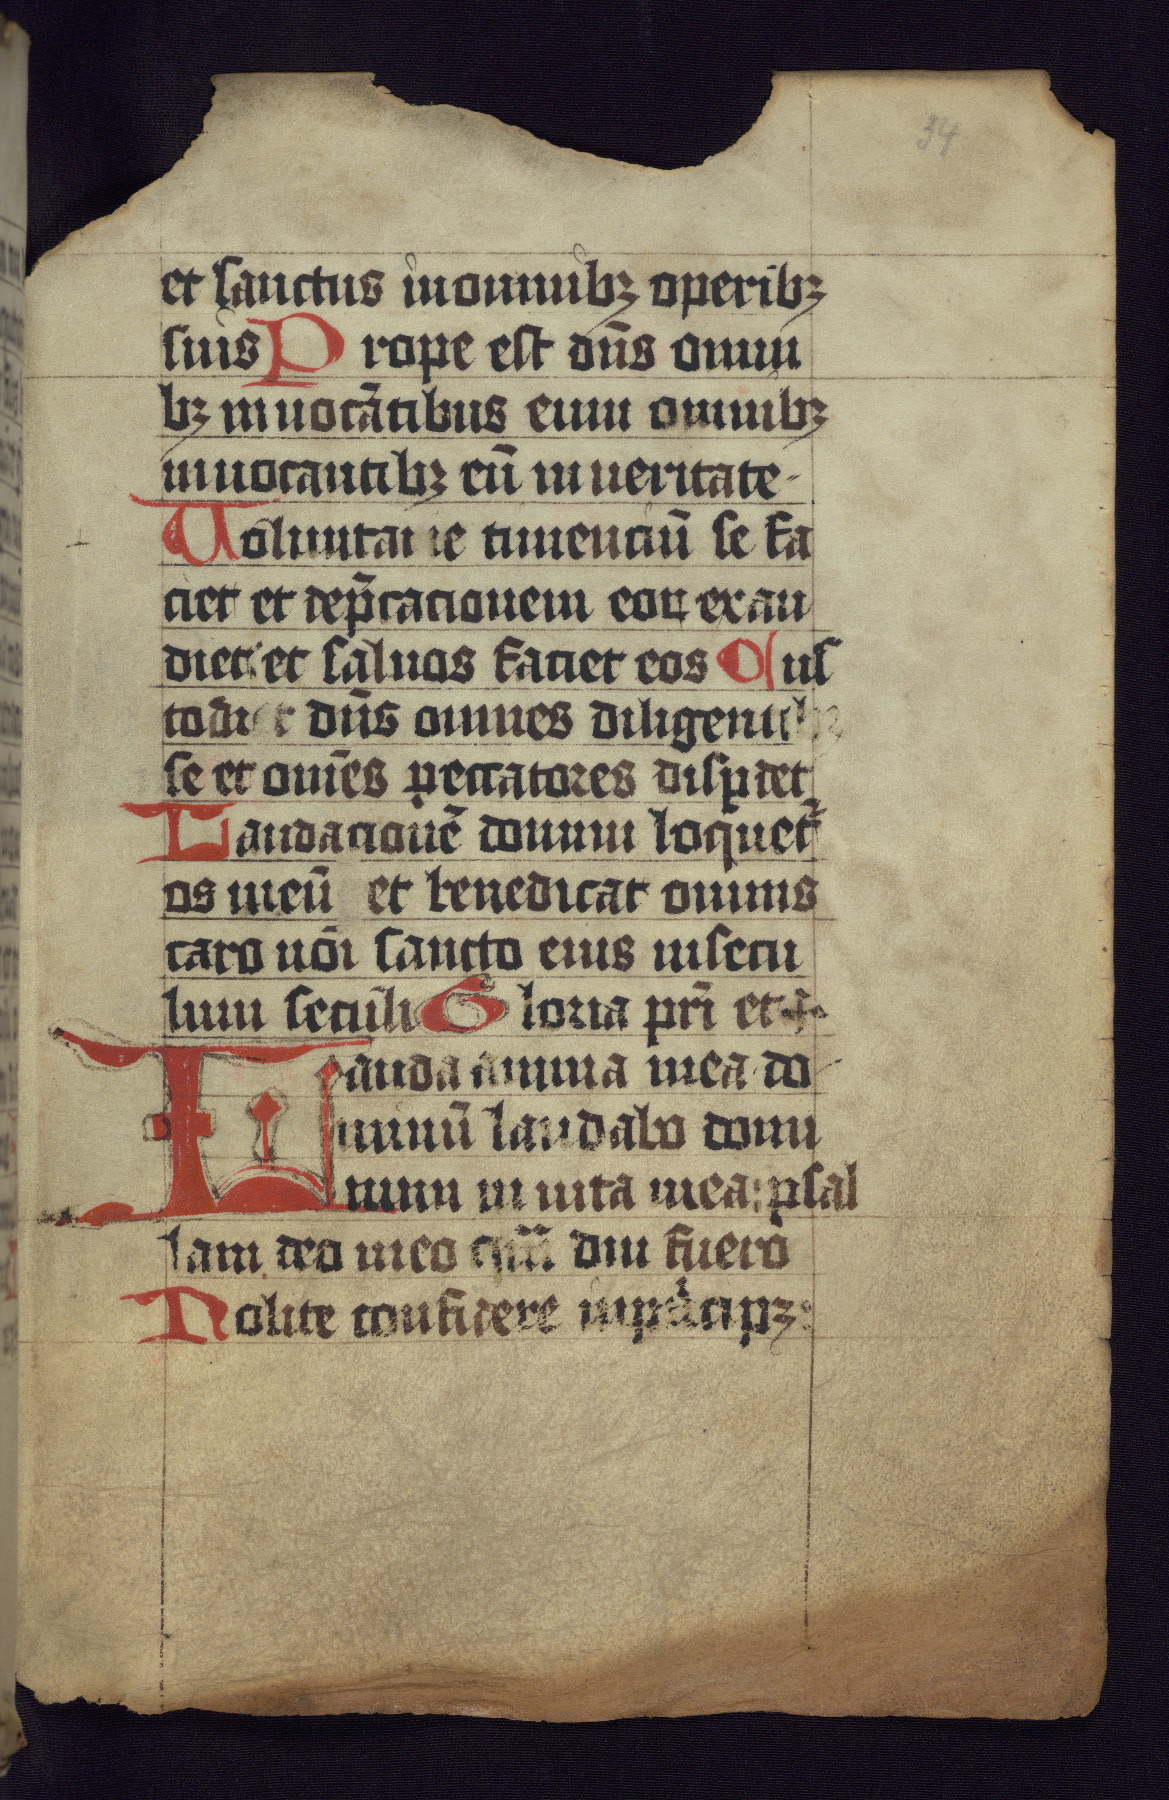 34
et sanctus in omnibꝫ operibꝫ
suis Prope est dn̄s omni
bꝫ inuocātibus eum omnibꝫ
inuocantibꝫ eū in ueritate
Uoluntatē timenciū se fa
ciet et dep̄cacionem eoꝝ exau
diet et saluos faciet eos Cus
todiet dn̄s omnes diligentibꝫ
se et om̄es peccatores disꝑdet
Laudacionē domini loquet᷑
os meū et benedicat omnis
caro nōi sancto eius in secu
lum seculi Gloria pr̄i et
Lauda anima mea do
minū laudabo domi
num in uita mea psal
lam deo meo diu fuero
Nolite confidere in pͥncipꝫ